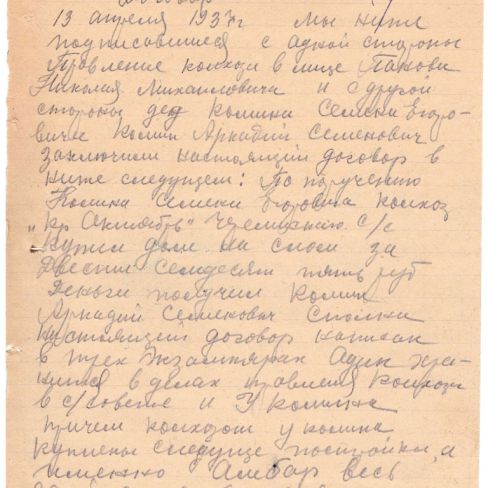 Договор
13 апреля 1937г Мы ниже
подписавшиеся с одной стороны
Правление колхоза в лице Панова
Николая Михаиловича и с другой
стороны дед Комина Семена Егоро-
вича Комин Аркадий Семенович
заключили настоящий договор в
ниже следущем: По поручению
Комина Семена Егоровича колхоз
„Кр Октябрь" с/с
купил дом на слом за
Двести семдесят пять руб
Деньги получил Комин
Аркадий Семенович Сполна
Настоящий договор написан
в трех Экзамплярах Один хра-
нится в делах правления колхоза
в с/совете и У комина
причем колхозом у комина
куплены следуще постройки, а
именно Амбар весь